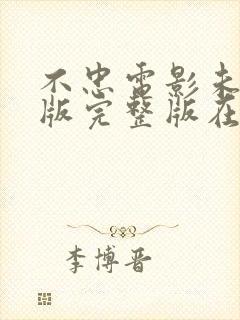 不忠电影未
版完整版在
李博晋